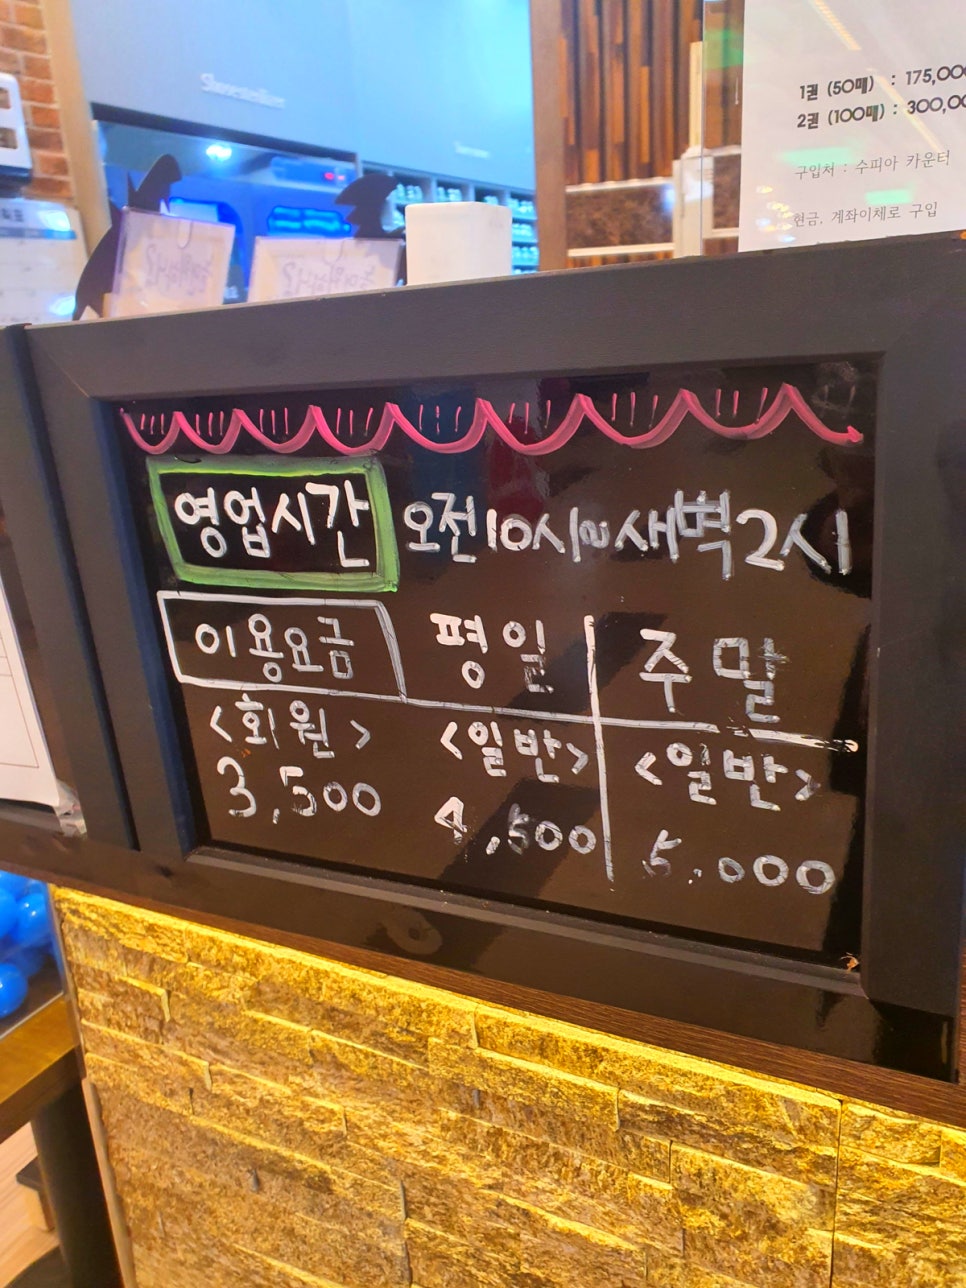 Shoesterilizer
1권 (50매) : 175,000
2권 (100매) : 300,00
구입처 : 수피아 카운터
현금, 계좌이체로 구입
영업시간 오전10시~새벽2시
이용요금 평일 주말
<회원> <일반> <일반>
3,500 4,500 5,000